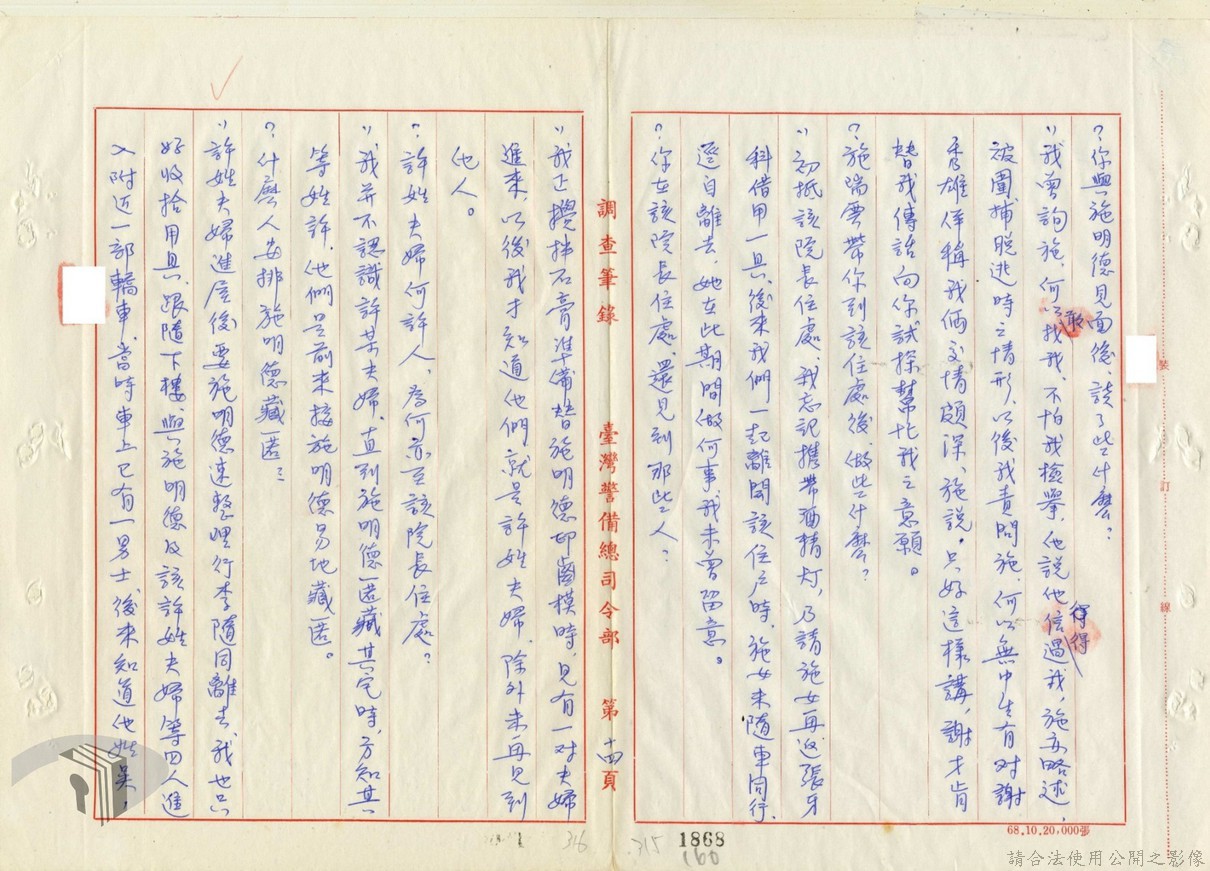 ?你與施明德見面後、談了些什麼?
:)我曾詢施、何以敢找我、不怕我檢舉、他說他信得過我、施亦略述、
被圍捕脫逃時之情形、以後我責問施、何以無中生有对謝
秀雄佯稱我倆交情頗深、施說。只好這樣講、謝才肯
替我傳話向你試探幫忙我之意願。
?施瑞雲帶你到該住處後、做些什麼?
:)初抵該院長住處、我忘記携帶酒精灯、乃請施女再返張牙
科借用一具、後來我們一起離開該住戶時、施女未隨車同行、
逕自離去、她在此期間做何事我未曾留意。
?你在該院長住處、還見到那些人?
調查筆錄 臺灣警備總司令部 第十四頁
:)我正攪拌石膏準備替施明德印齒模時、見有一对夫婦
進來、以後我才知道他們就是許姓夫婦、除外未再見到
他人。
?許姓夫婦何許人、為何亦至該院長住處?
:)我并不認識許某夫婦、直到施明德匿藏其宅時、方知其
等姓許、他們是前來接施明德易地藏匿。
?什麼人安排施明德藏匿?
:)許姓夫婦進屋後要施明德速整理行李隨同離去、我也只
好收拾用具、跟隨下樓與施明德及該許姓夫婦等四人進
入附近一部轎車、當時車上已有一男士、後來知道他姓吳、
裝 訂 線
68.10.20,000張
316
315
1868
160
請合法使用公開之影像